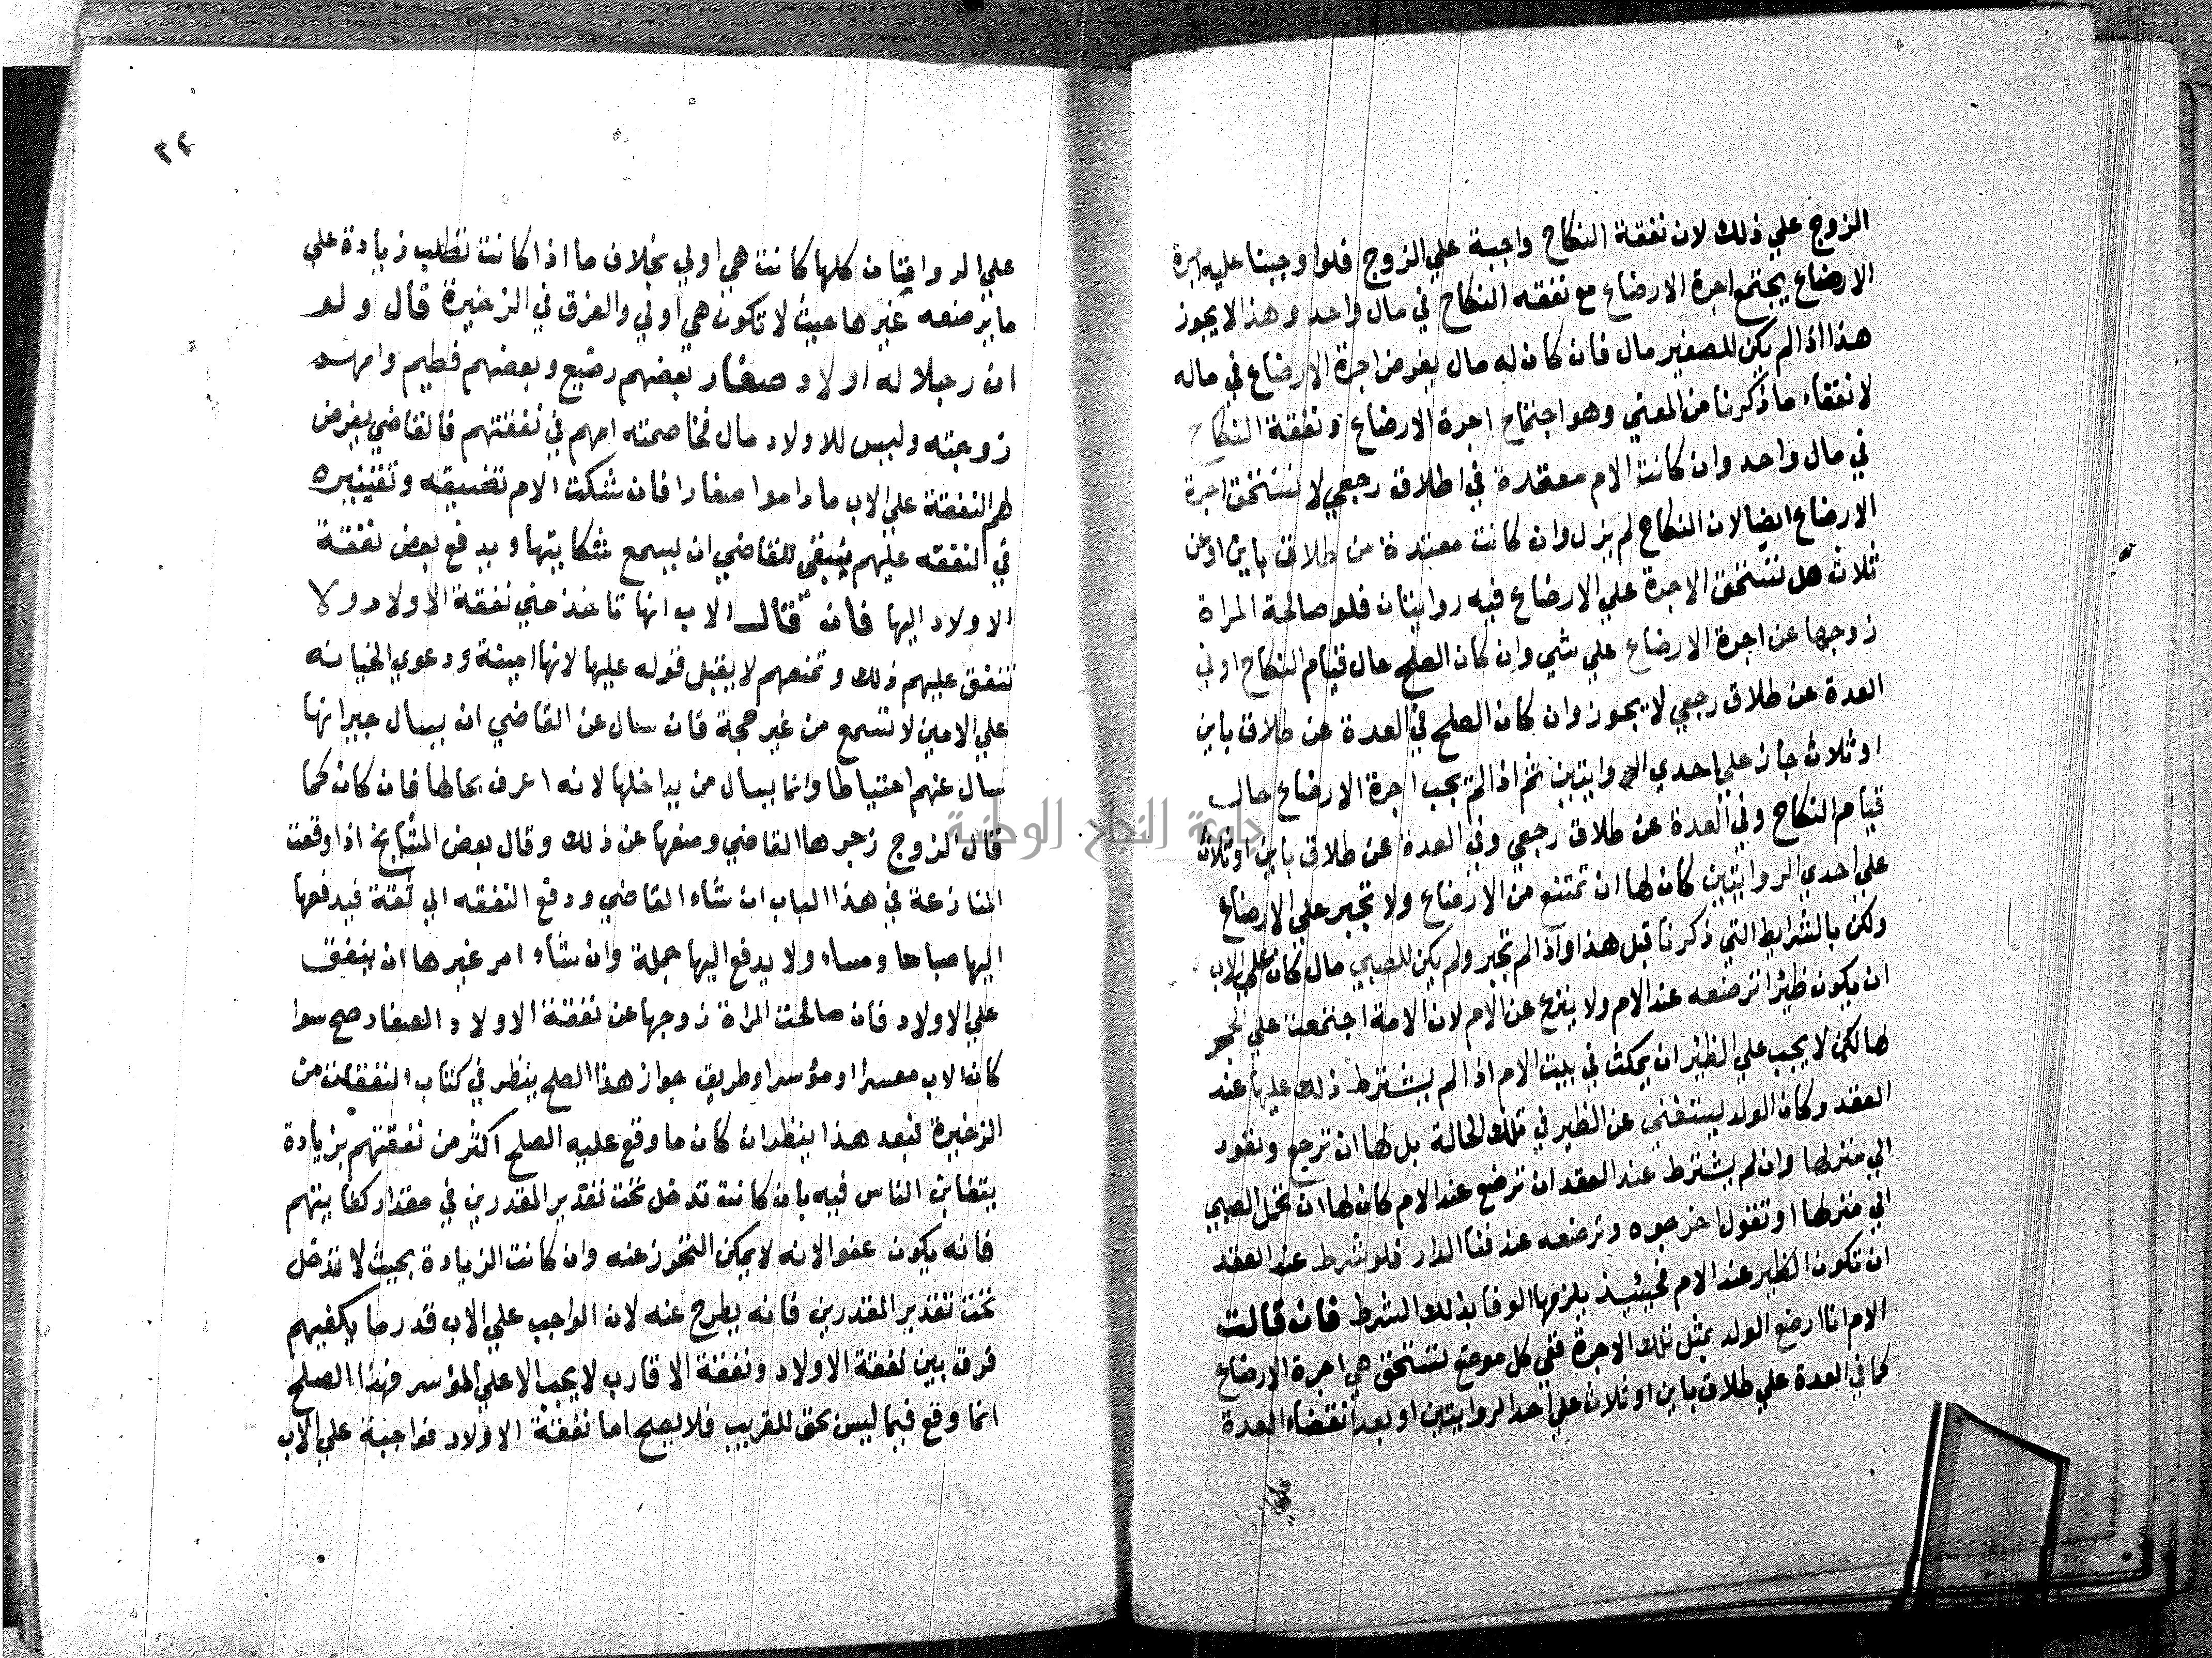 الزوج علي ذلك لان نفقة النكاح واجبة علي الزوج فلو اوجبنا عليه اجرة
الارضاع يجتمع اجرة الارضاع مع نفقه النكاح في مال واحد وهذا لا يجوز
هذا اذا لم يكن للصغير مال فان كان له مال يفرض اجرة الارضاع في ماله
لانتفاء ما ذكرنا من المعني وهو اجتماع اجرة الارضاع ونفقة النكاح
في مال واحد وان كانت الام معتدة في طلاق رجعي لا تستحق اجرة
الارضاع ايضا لان النكاح لم يزل وان كانت معتدة من طلاق باين او من
ثلاث هل تستحق الاجرة علي الارضاع فيه روايتان فلو صالحة المراة
زوجها عن اجرة الارضاع علي شي وان كان الصلح حال قيام النكاح او في
العدة عن طلاق رجعي لا يجوز وان كان الصلح في العدة عن طلاق باين
او ثلاث جاز علي احدي الروايتين ثم اذا لم يجب اجرة الارضاع حال
قيام النكاح وفي العدة عن طلاق رجعي وفي العدة عن طلاق باين او ثلاث
علي احدي الروايتين كان لها ان تمتنع من الارضاع ولا تجبر علي الارضاع
ولكن بالشرايط التي ذكرنا قبل هذا واذا لم تجبر ولم يكن للصبي مال كان علي الاب
ان يكون ظيرا ترضعه عند الام ولا ينزع عن الام لان الامة اجتمعت علي الحجر
لها لكن لا يجب علي الظير ان يمكث في بيت الام اذا لم يشترط ذلك عليها عند
العقد وكان الولد يستغني عن الظير في تلك الحالة بل لها ان ترجع وتعود
الي منزلها وان لم يشترط عند العقد ان ترضع عند الام كان لها ان تحمل الصبي
الي منزلها او تقول اخرجوه وترضعه عند فنا الدار فلو شرط عند العقد
ان تكون الظير عند الام فحينيذ يلزمها الوفا بذلك الشرط فان قالت
الام انا ارضع الولد بمثل تلك الاجرة ففي كل موضع تستحق هي اجرة الارضاع
كما في العدة علي طلاق باين او ثلاث علي احد الروايتين او بعد انقضاء العدة
٣٢
علي الروايتان كلها كانت هي اولي بخلاف ما اذا كانت تطلب زيادة علي
ما يرضعه غيرها حيث لا تكون هي اولي والفرق في الزخيرة قال ولو
ان رجلا له اولاد صغار بعضهم رضيع وبعضهم فطيم وامهم
زوجته وليس للاولاد مال فخاصمته امهم في نفقتهم فالقاضي يفرض
لهم النفقة علي الاب ما داموا صغارا فان شكت الام تضييقه وتقتيره
في النفقه عليهم ينبغي للقاضي ان يسمع شكايتها ويدفع بعض نفقة
الاولاد اليها فان قال الاب انها تاخذ مني نفقة الاولاد ولا
تنفق عليهم ذلك وتمنعهم لا يقبل قوله عليها لانها امينة ودعوي الخيانه
علي الامين لا تسمع من غير حجة فان سال عن القاضي ان يسال جيرانها
سال عنهم احتياطا وانما يسال من يداخلها لانه اعرف بحالها فان كان كما
قال الزوج زجرها القاضي ومنعها عن ذلك وقال بعض المشايخ اذا وقعت
المنازعة في هذا الباب ان شاء القاضي ودفع النفقه الي ثقة فيدفعها
اليها صباحا ومساء ولا يدفع اليها جملة وان شاء امر غيرها ان ينفق
علي الاولاد فان صالحت المراة زوجها عن نفقة الاولاد الصغار صح سوا
كان الاب معسرا او مؤسرا وطريق جواز هذا الصلح ينظر في كتاب النفقات من
الزخيرة فبعد هذا ينظر ان كان ما وقع عليه الصلح اكثر من نفقتهم بزيادة
يتغابن الناس فيه بان كانت تدخل تحت تقدير المقدرين في مقدار كفايتهم
فانه يكون عفوا لانه لا يمكن التحرز عنه وان كانت الزيادة بحيث لا تدخل
تحت تقدير المقدرين فانه يطرح عنه لان الواجب علي الاب قدر ما يكفيهم
فرق بين نفقة الاولاد ونفقة الاقارب لا يجب الا علي المؤسر فهذا الصلح
انما وقع فيما ليس بحق للقريب فلا يصح اما نفقة الاولاد فواجبة علي الاب
جامعة النجاح الوطنية